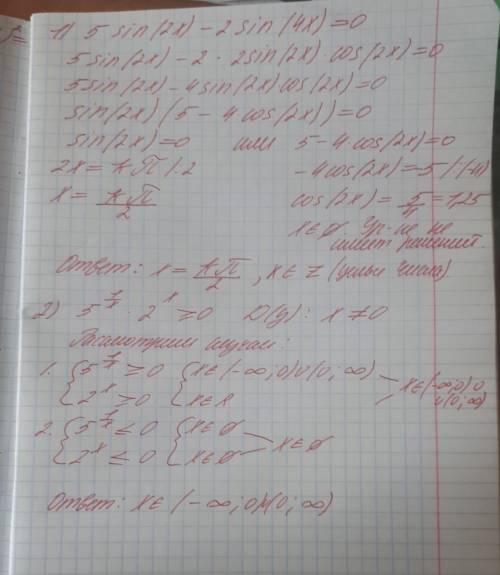 1) 5 sin(2x) - 2 sin(4x) = 0
5 sin(2x) - 2 · 2sin(2x) · cos(2x) = 0
5sin(2x) - 4sin(2x)cos(2x) = 0
sin(2x)(5 - 4cos(2x)) = 0
sin(2x) = 0 или 5 - 4cos(2x) = 0
2x = kπ |:2 -4cos(2x) = -5 |:(-4)
x = kπ/2 cos(2x) = 5/4 = 1,25
x ∈ ∅. Ур-не не
имеет решений.
Ответ: x = kπ/2, x ∈ Z (целые числа)
2) 5^(1/x) · 2^x ≥ 0 D(y): x ≠ 0
Рассмотрим случаи:
1. { 5^(1/x) ≥ 0 { x ∈ (-∞; 0) ∪ (0; ∞)
2^x ≥ 0 x ∈ R x ∈ (-∞; 0) ∪
∪ (0; ∞)
2. { 5^(1/x) ≤ 0 { x ∈ ∅
2^x ≤ 0 x ∈ ∅ x ∈ ∅
Ответ: x ∈ (-∞; 0) ∪ (0; ∞)